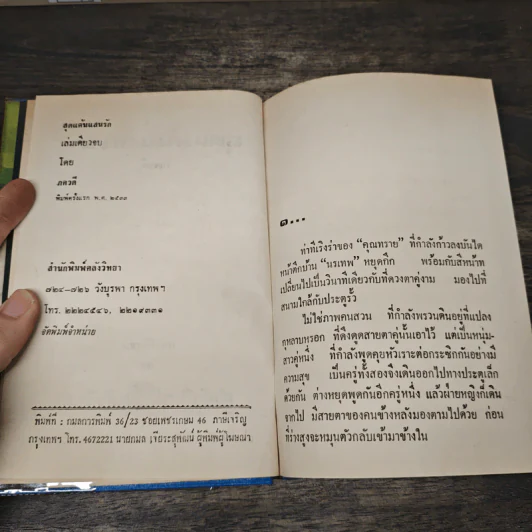 สุดแค้นแสนรัก
เล่มเดียวจบ
โดย
ภควดี
พิมพ์ครั้งแรก พ.ศ. ๒๕๓๓
สำนักพิมพ์คลังวิทยา
๗๒๔-๗๒๖ วังบูรพา กรุงเทพฯ
โทร. ๒๒๒๔๕๔๖, ๒๒๑๙๓๓๑
จัดพิมพ์จำหน่าย
พิมพ์ที่ : กมลการพิมพ์ 36/23 ซอยเพชรเกษม 46 ภาษีเจริญ
กรุงเทพฯ โทร. 4672221 นายกมล เจียระสุพัฒน์ ผู้พิมพ์ผู้โฆษณา
๑...
ท่าทีเริงร่าของ “คุณทราย” ที่กำลังก้าวลงบันได
หน้าตึกบ้าน “นรเทพ” หยุดกึก พร้อมกับสีหน้าท
เปลี่ยนไปเป็นวินาทีเดียวกับที่ดวงตาคู่งาม มองไปที่
สนามใกล้กับประตูรั้ว
ไม่ใช่ภาพคนสวน ที่กำลังพรวนดินอยู่ที่แปลง
กุหลาบหรอก ที่ดึงดูดสายตาคู่นั้นเอาไว้ แต่เป็นหนุ่ม-
สาวคู่หนึ่ง ที่กำลังพูดคุยหัวเราะต่อกระซิกกันอย่างมี
ความสุข เป็นครู่ทั้งสองจึงเดินออกไปทางประตูเล็ก
ด้วยกัน ต่างหยุดพูดกันอีกครู่หนึ่ง แล้วฝ่ายหญิงก็เดิน
จากไป มีสายตาของคนข้างหลังมองตามไปด้วย ก่อน
ที่ร่างสูงจะหมุนตัวกลับเข้ามาข้างใน